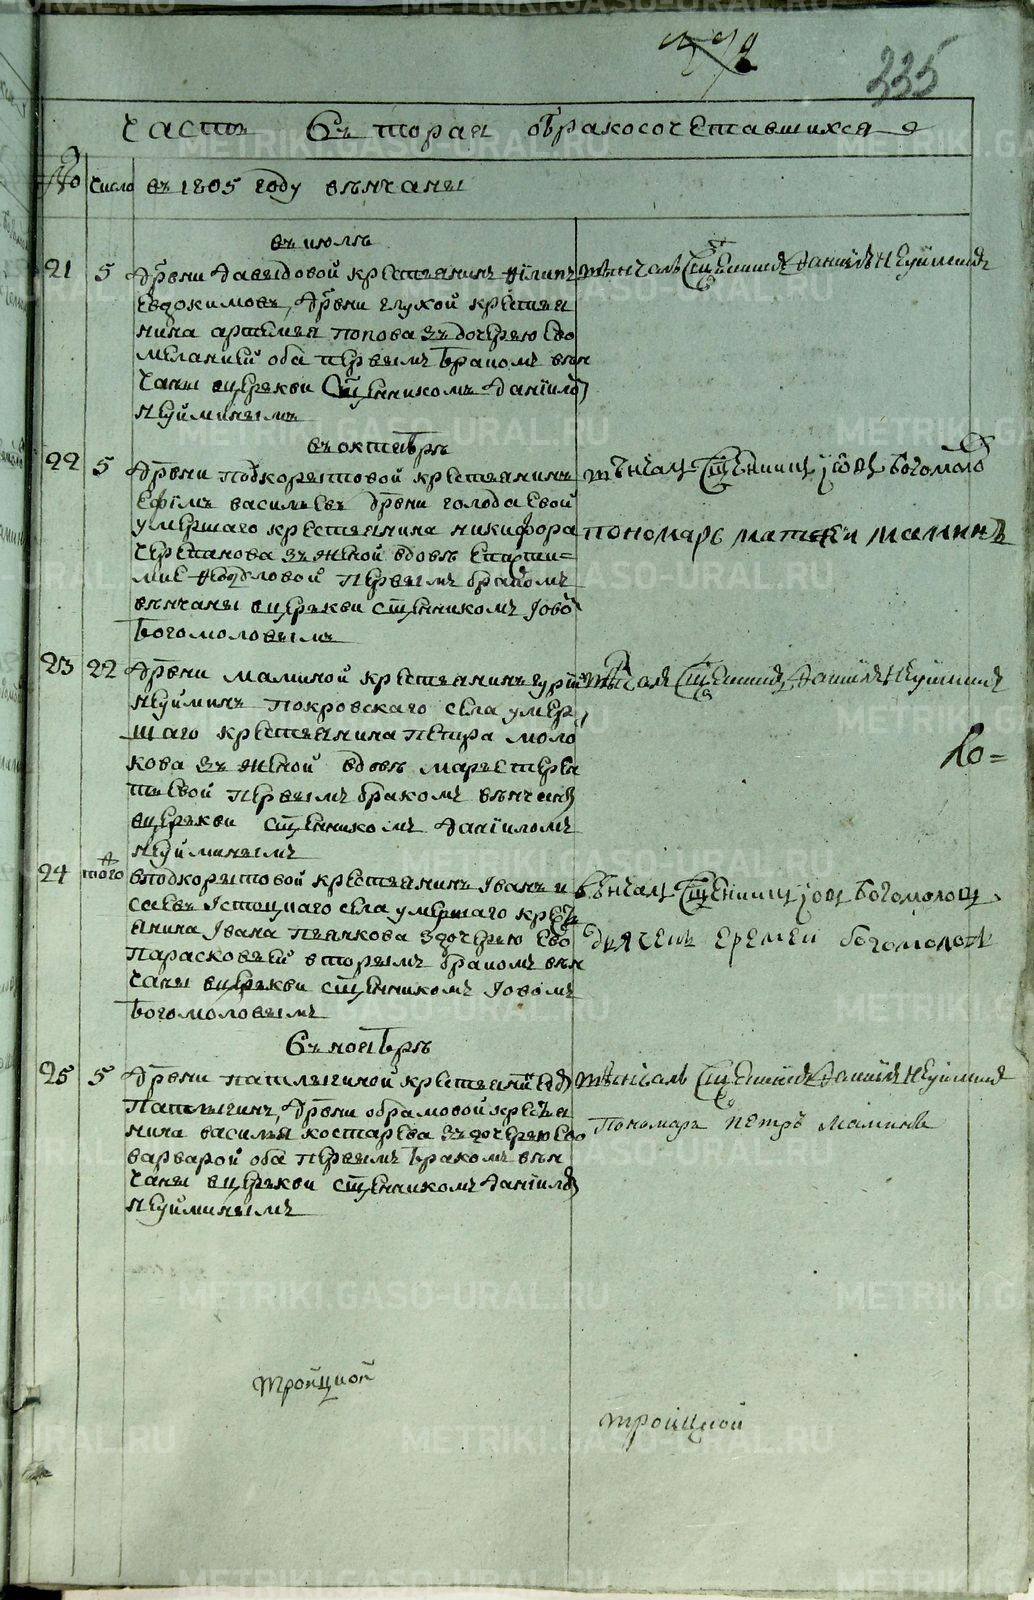 335
Часть вторая обракосочетавшихся
№ число въ 1805 году венчаны
въ июлѣ
21 5 дрвни Давыдовой крестьянинъ Филипъ
Евдокимовъ, дрвни глухой крестья
нина артемья попова зъ дочерью ево
меланией оба первымъ бракомъ вѣн
чаны вцеркви Сщенникомъ Данїило
Неуйминымъ
вѣнчалъ Сщенникъ Даниилъ Неуйминъ
въ октябрѣ
22 5 дрвни подкорытовой крестьянинъ
Ефїмъ васильевъ дрвни голодаевой
умершаго крестьянина никифора
черепанова зъ женой вдовъ
первымъ бракомъ
вѣнчаны вцеркви сщенникомъ Іово
Богомоловымъ
вѣнчалъ Сщенникъ іовъ Богомоло
пономарь матфеи маминъ
23 22 дрвни маминой крестьянинъ гурїй
Неуйминъ покровскаго села умер
шаго крестьянина петра моло
кова зъ женой вдовъ марьетерен
тьевой первымъ бракомъ вѣнчаны
вцеркви сщенникомъ данїиломъ
Неуйминымъ
вѣнчалъ Сщенникъ Даниилъ Неуйминъ
Ло=
24 того вподкорытовой крестьянинъ Іванъ и
саевъ Істоцкаго села умершаго крест
янина Івана пьянкова здочерью ево
Парасковьей вторымъ бракомъ вѣн
чаны вцеркви сщенникомъ Іовомъ
Богомоловымъ
вѣнчалъ Сщенникъ іовъ Богомоловъ
дьячекъ еремеи богомоловъ
въ ноябрѣ
25 5 дрвни пашлыгиной крестьянинъ
Пашлыгинъ, дрвни абрамовой крестья
нина василья костарева зъ дочерью ево
варварой оба первымъ бракомъ вѣн
чаны вцеркви сщенникомъ Данїило
Неуйминымъ
вѣнчалъ Сщенникъ Даниилъ Неуйминъ
Пономарь петръ маминъ
тройцкой
тройцкой
METRIKI.GASO-URAL.RU